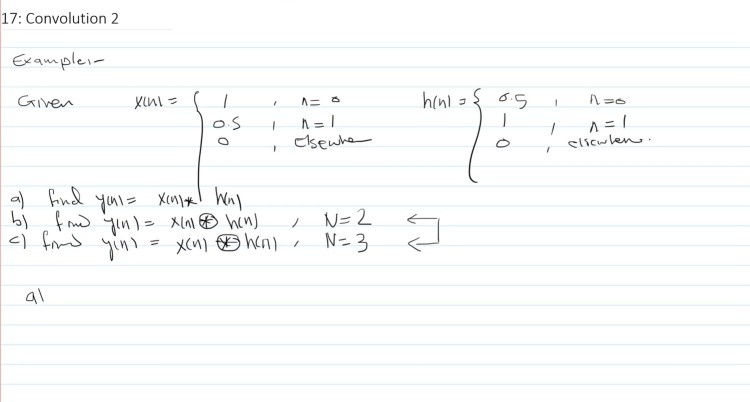 17: Convolution 2
Example:-
Given x(n) = { 1 , n = 0 h(n) = { 0.5 , n = 0
0.5 , n = 1 1 , n = 1
0 , elsewhere 0 , elsewhere.
a) find y(n) = x(n) * h(n)
b) find y(n) = x(n) ⊛ h(n) , N = 2
c) find y(n) = x(n) ⊛ h(n) , N = 3
a)